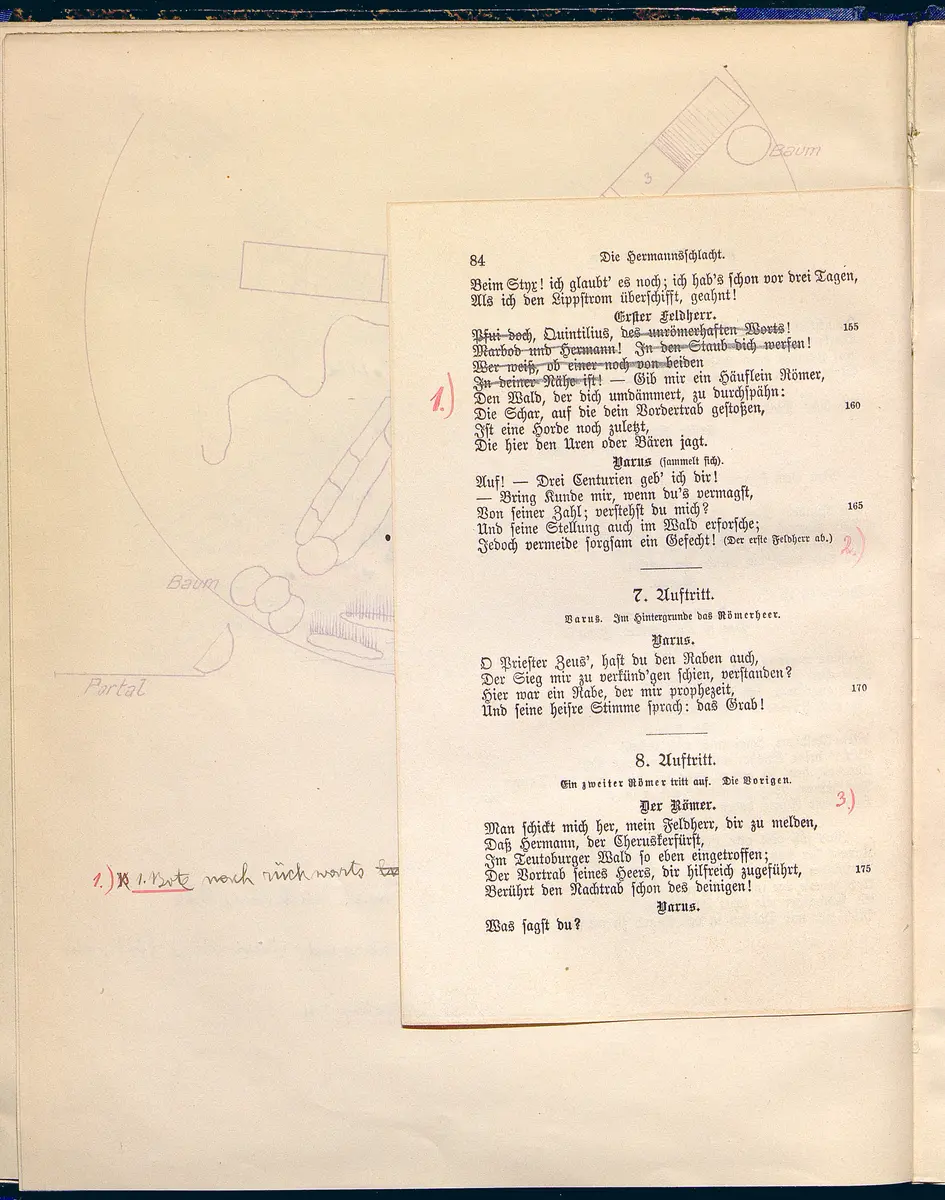 Baum
3
84 Die Hermannsschlacht.
Beim Styx! ich glaubt' es noch; ich hab's schon vor drei Tagen,
Als ich den Lippstrom überschifft, geahnt!
Erster Feldherr.
Pfui doch, Quintilius, des unrömerhaften Worts! 155
Marbod und Hermann! In den Staub dich werfen!
Wer weiß, ob einer noch von beiden
In deiner Nähe ist! — Gib mir ein Häuflein Römer,
1.)
Den Wald, der dich umdämmert, zu durchspähn:
Die Schar, auf die dein Vordertrab gestoßen, 160
Ist eine Horde noch zuletzt,
Die hier den Uren oder Bären jagt.
Varus (sammelt sich).
Auf! — Drei Centurien geb' ich dir!
— Bring Kunde mir, wenn du's vermagst,
Von seiner Zahl; verstehst du mich? 165
Und seine Stellung auch im Wald erforsche;
Jedoch vermeide sorgsam ein Gefecht! (Der erste Feldherr ab.) 2.)
Baum
7. Auftritt.
Varus. Im Hintergrunde das Römerheer.
Varus.
O Priester Zeus', hast du den Raben auch,
Der Sieg mir zu verkünd'gen schien, verstanden?
Hier war ein Rabe, der mir prophezeit, 170
Und seine heisre Stimme sprach: das Grab!
Portal
8. Auftritt.
Ein zweiter Römer tritt auf. Die Vorigen.
Der Römer. 3.)
Man schickt mich her, mein Feldherr, dir zu melden,
Daß Hermann, der Cheruskerfürst,
Im Teutoburger Wald so eben eingetroffen;
Der Vortrab seines Heers, dir hilfreich zugeführt, 175
Berührt den Nachtrab schon des deinigen!
Varus.
Was sagst du?
1.) 1. Bote nach rückwarts